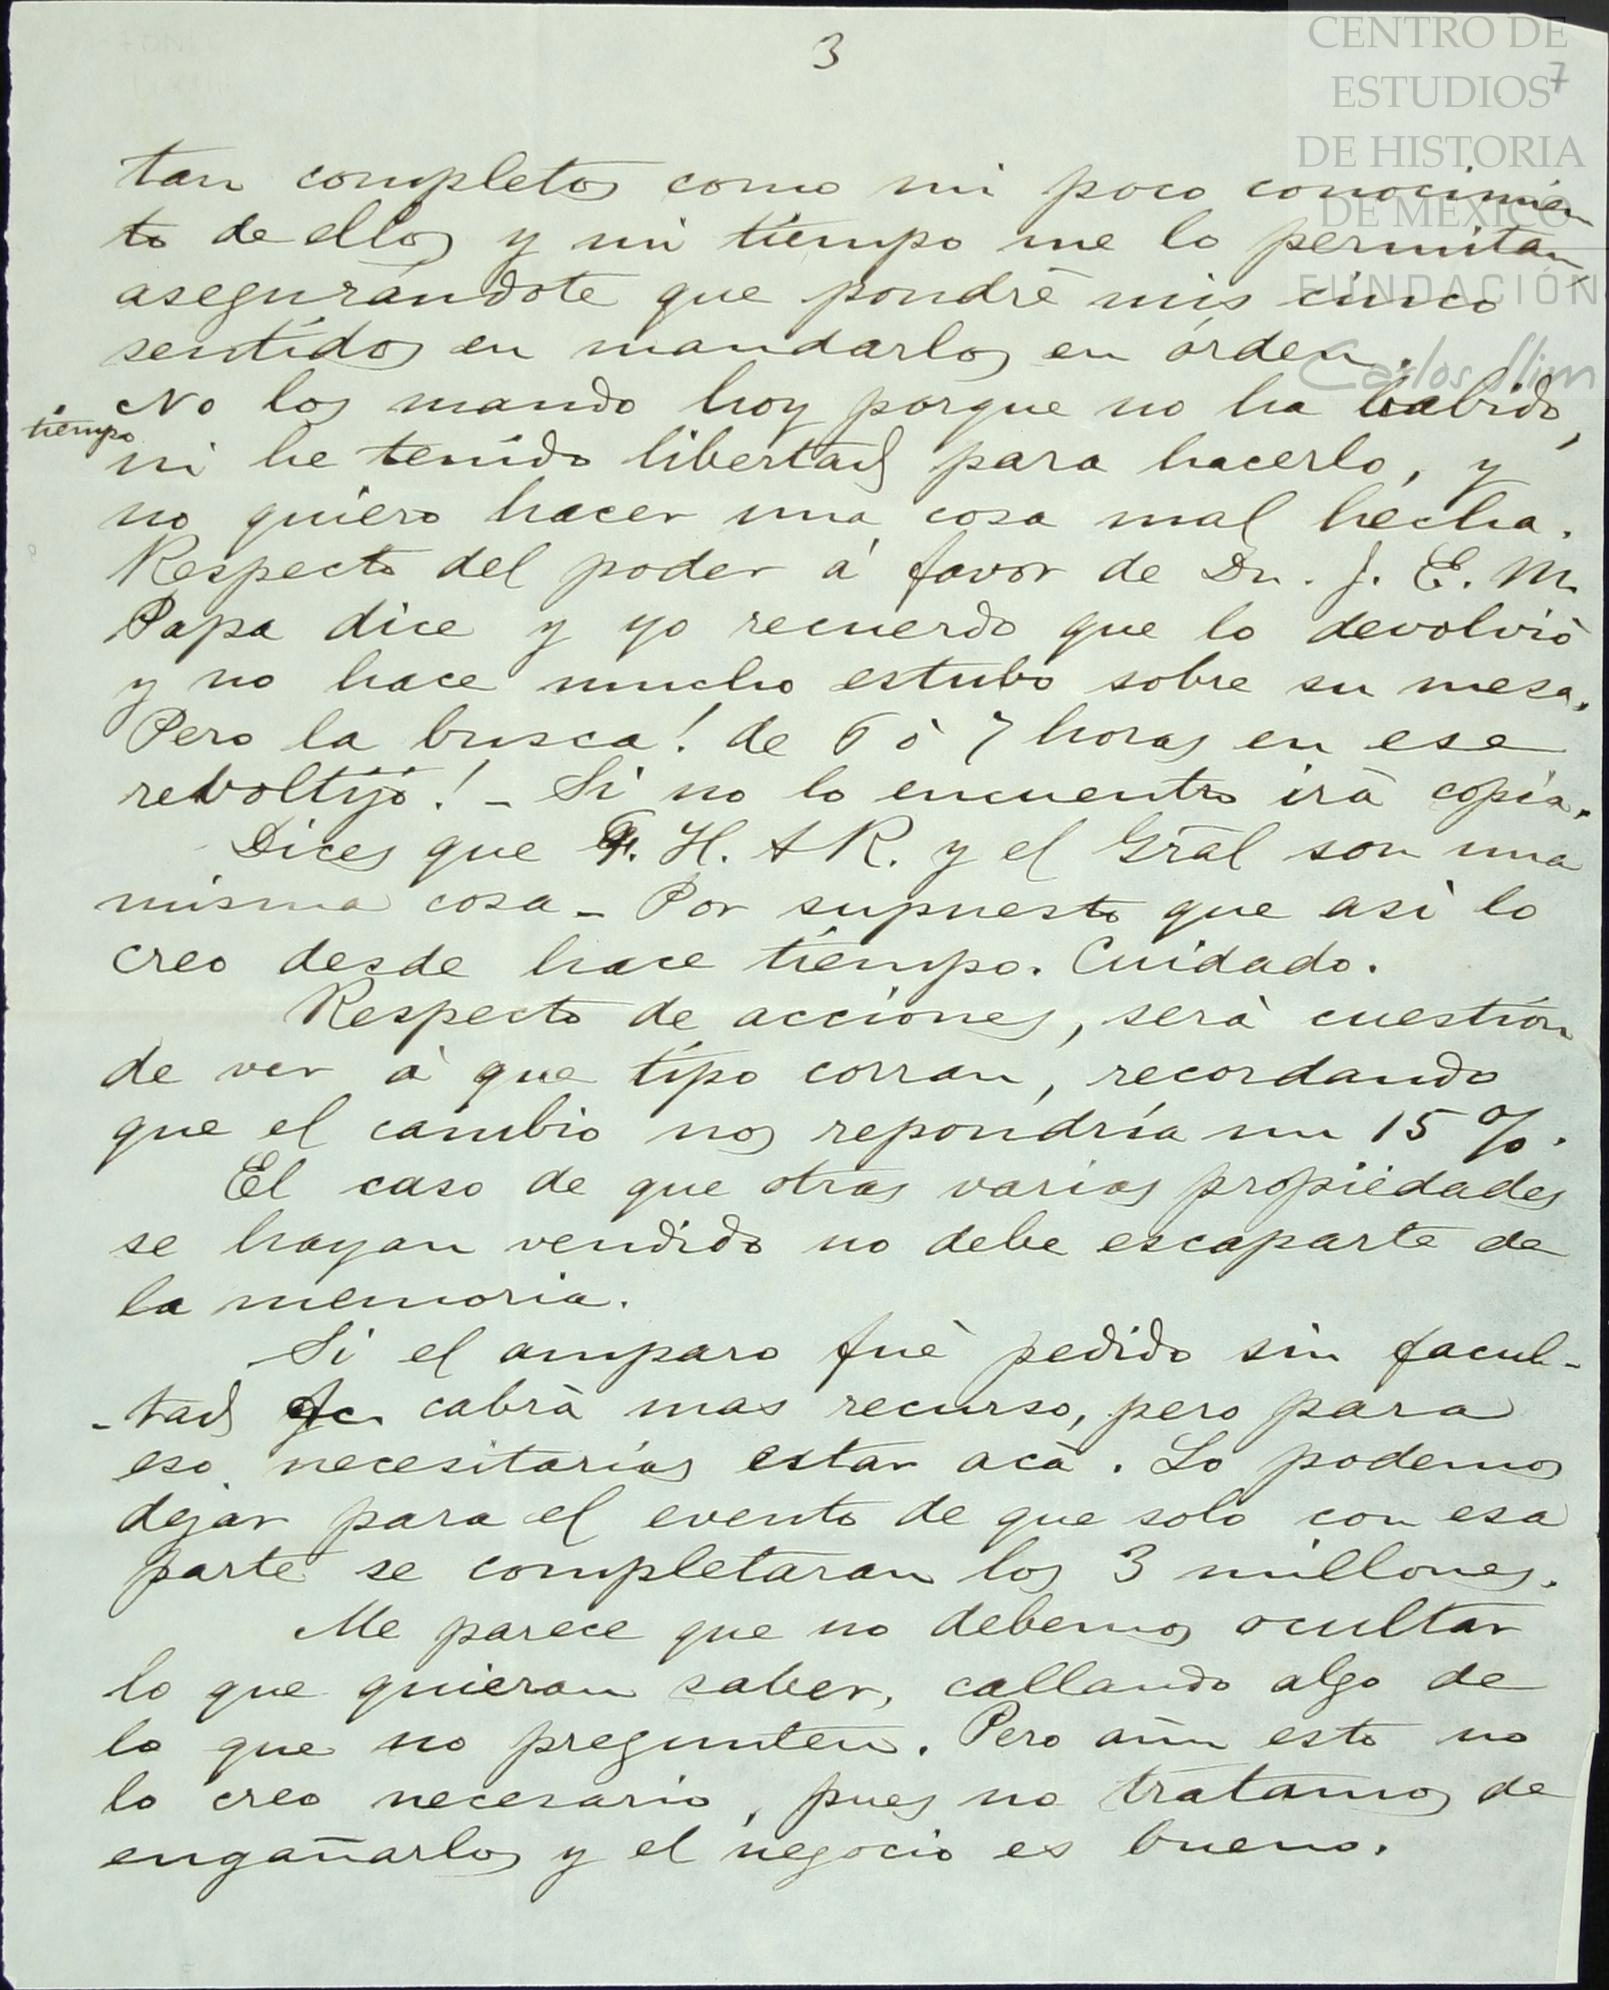 3
7
CENTRO DE
ESTUDIOS
DE HISTORIA
DE MÉXICO
FUNDACIÓN
Carlos Slim
tan completos como mi poco conocimien
to de ellos y mi tiempo me lo permitan,
asegurándote que pondré mis cinco
sentidos en mandarlos en órden.
No los mando hoy porque no ha habido,
tiempo
ni he tenido libertad para hacerlo, y
no quiero hacer una cosa mal hecha.
Respecto del poder á favor de Dn. J. E. M.
Papa dice y yo recuerdo que lo devolvió
y no hace mucho estubo sobre su mesa.
Pero la busca! de 6 ó 7 horas en ese
reboltijo! - Si no lo encuentro irá copia.
Dices que F. H. & R. y el Gral son una
misma cosa - Por supuesto que asi lo
creo desde hace tiempo. Cuidado.
Respecto de acciones, será cuestión
de ver á que tipo corran, recordando
que el cambio nos repondría un 15 %.
El caso de que otras varias propiedades
se hayan vendido no debe escaparte de
la memoria.
Si el amparo fué pedido sin facul-
-tad cabrá mas recurso, pero para
eso necesitarías estar acá. Lo podemos
dejar para el evento de que solo con esa
parte se completaran los 3 millones.
Me parece que no debemos ocultar
lo que quieran saber, callando algo de
lo que no pregunten. Pero aún esto no
lo creo necesario, pues no tratamos de
engañarlos y el negocio es bueno.